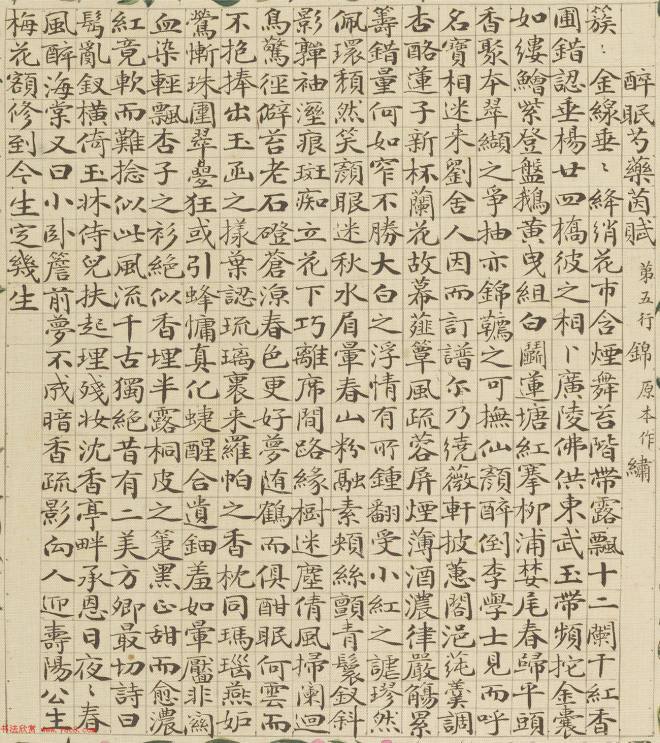 醉眠芍藥茵賦 第五行錦原本作繡
簇〻金線垂〻絳綃花市含煙舞苔階帶露飄十二闌干紅香
圃錯認垂楊廿四橋彼之相卜廣陵佛供東武玉帶頻拕金囊
如縷鱠紫登盤鵝黃曳組白鬭蓮塘紅搴柳浦婪尾春歸平頭
香聚本翠纈之爭抽亦錦韉之可撫仙顏醉倒李學士見而呼
名寶相迷來劉舍人因而訂譜尒乃繞薇軒披蕙閣浥蒓羹調
杏酪蓮子新杯蘭花故幕薤簟風疏蓉屏煙薄酒濃律嚴觴累
籌錯量何如窄不勝大白之浮情有所鍾翻受小紅之謔璆然
佩環頹然笑顏眼迷秋水眉暈春山粉融素頰絲顫青鬟釵斜
影嚲袖溼痕斑痴立花下巧離席間路緣樹迷塵倩風掃闌迴
鳥驚徑僻苔老石磴蒼涼春色更好夢随鶴而俱酣眠何雲而
不抱捧出玉函之樣葉認琉璃裹来羅帕之香枕同瑪瑙燕妒
鶯慚珠圍翠疊狂或引蜂慵真化蜨醒合遺鈿羞如暈靨非
血染輕飄杏子之衫絕似香埋半露桐皮之箑黑正甜而愈濃
紅竟軟而難捻似此風流千古獨絕昔有二美方卿最切詩曰
鬅亂釵橫倚玉牀侍兒扶起理殘妝沈香亭畔承恩日夜〻春
風醉海棠又曰小卧簷前夢不成暗香疏影向人迎壽陽公主
梅花額修到今生定幾生
书法欣赏